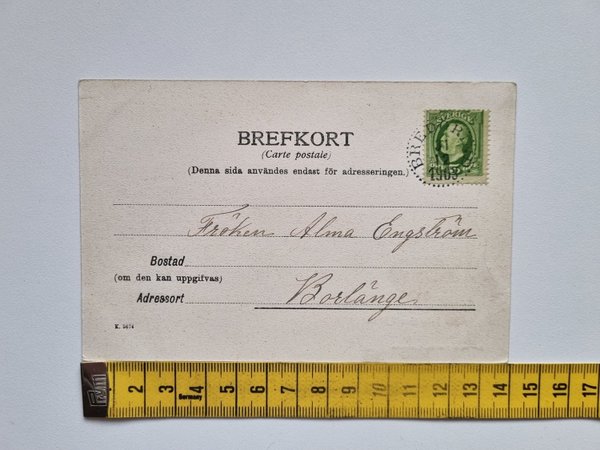 BREFKORT
SVERIGE
(Carte postale)
1903
(Denna sida användes endast för adresseringen.)
Fröken Alma Engström
Bostad
(om den kan uppgifvas)
Adressort
Borlänge
K. 5674
2 3 4 5 6 7 8 9 10 11 12 13 14 15 16 17
Germany